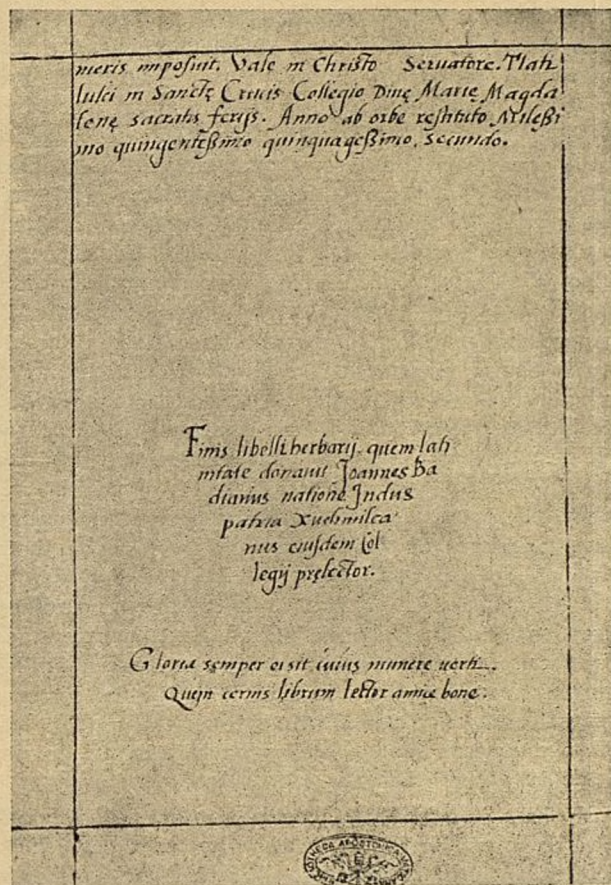 meris imposuit. Vale in Christo Seruatore. Tlati
lulci in Sanctę Crucis Collegio Diuę Marię Magda
lenę sacratis ferijs. Anno ab orbe restituto Milleßi
mo quingenteßimo quinquageßimo, Secundo.
Finis libelli herbarij. quem lati
nitate donauit Joannes Ba
dianus natione Jndus
patria Xuchmilca
nus eiusdem Col
legij pręlector.
Gloria semper ei sit cuius munere verti
Quem cernis librum lector amice bone.